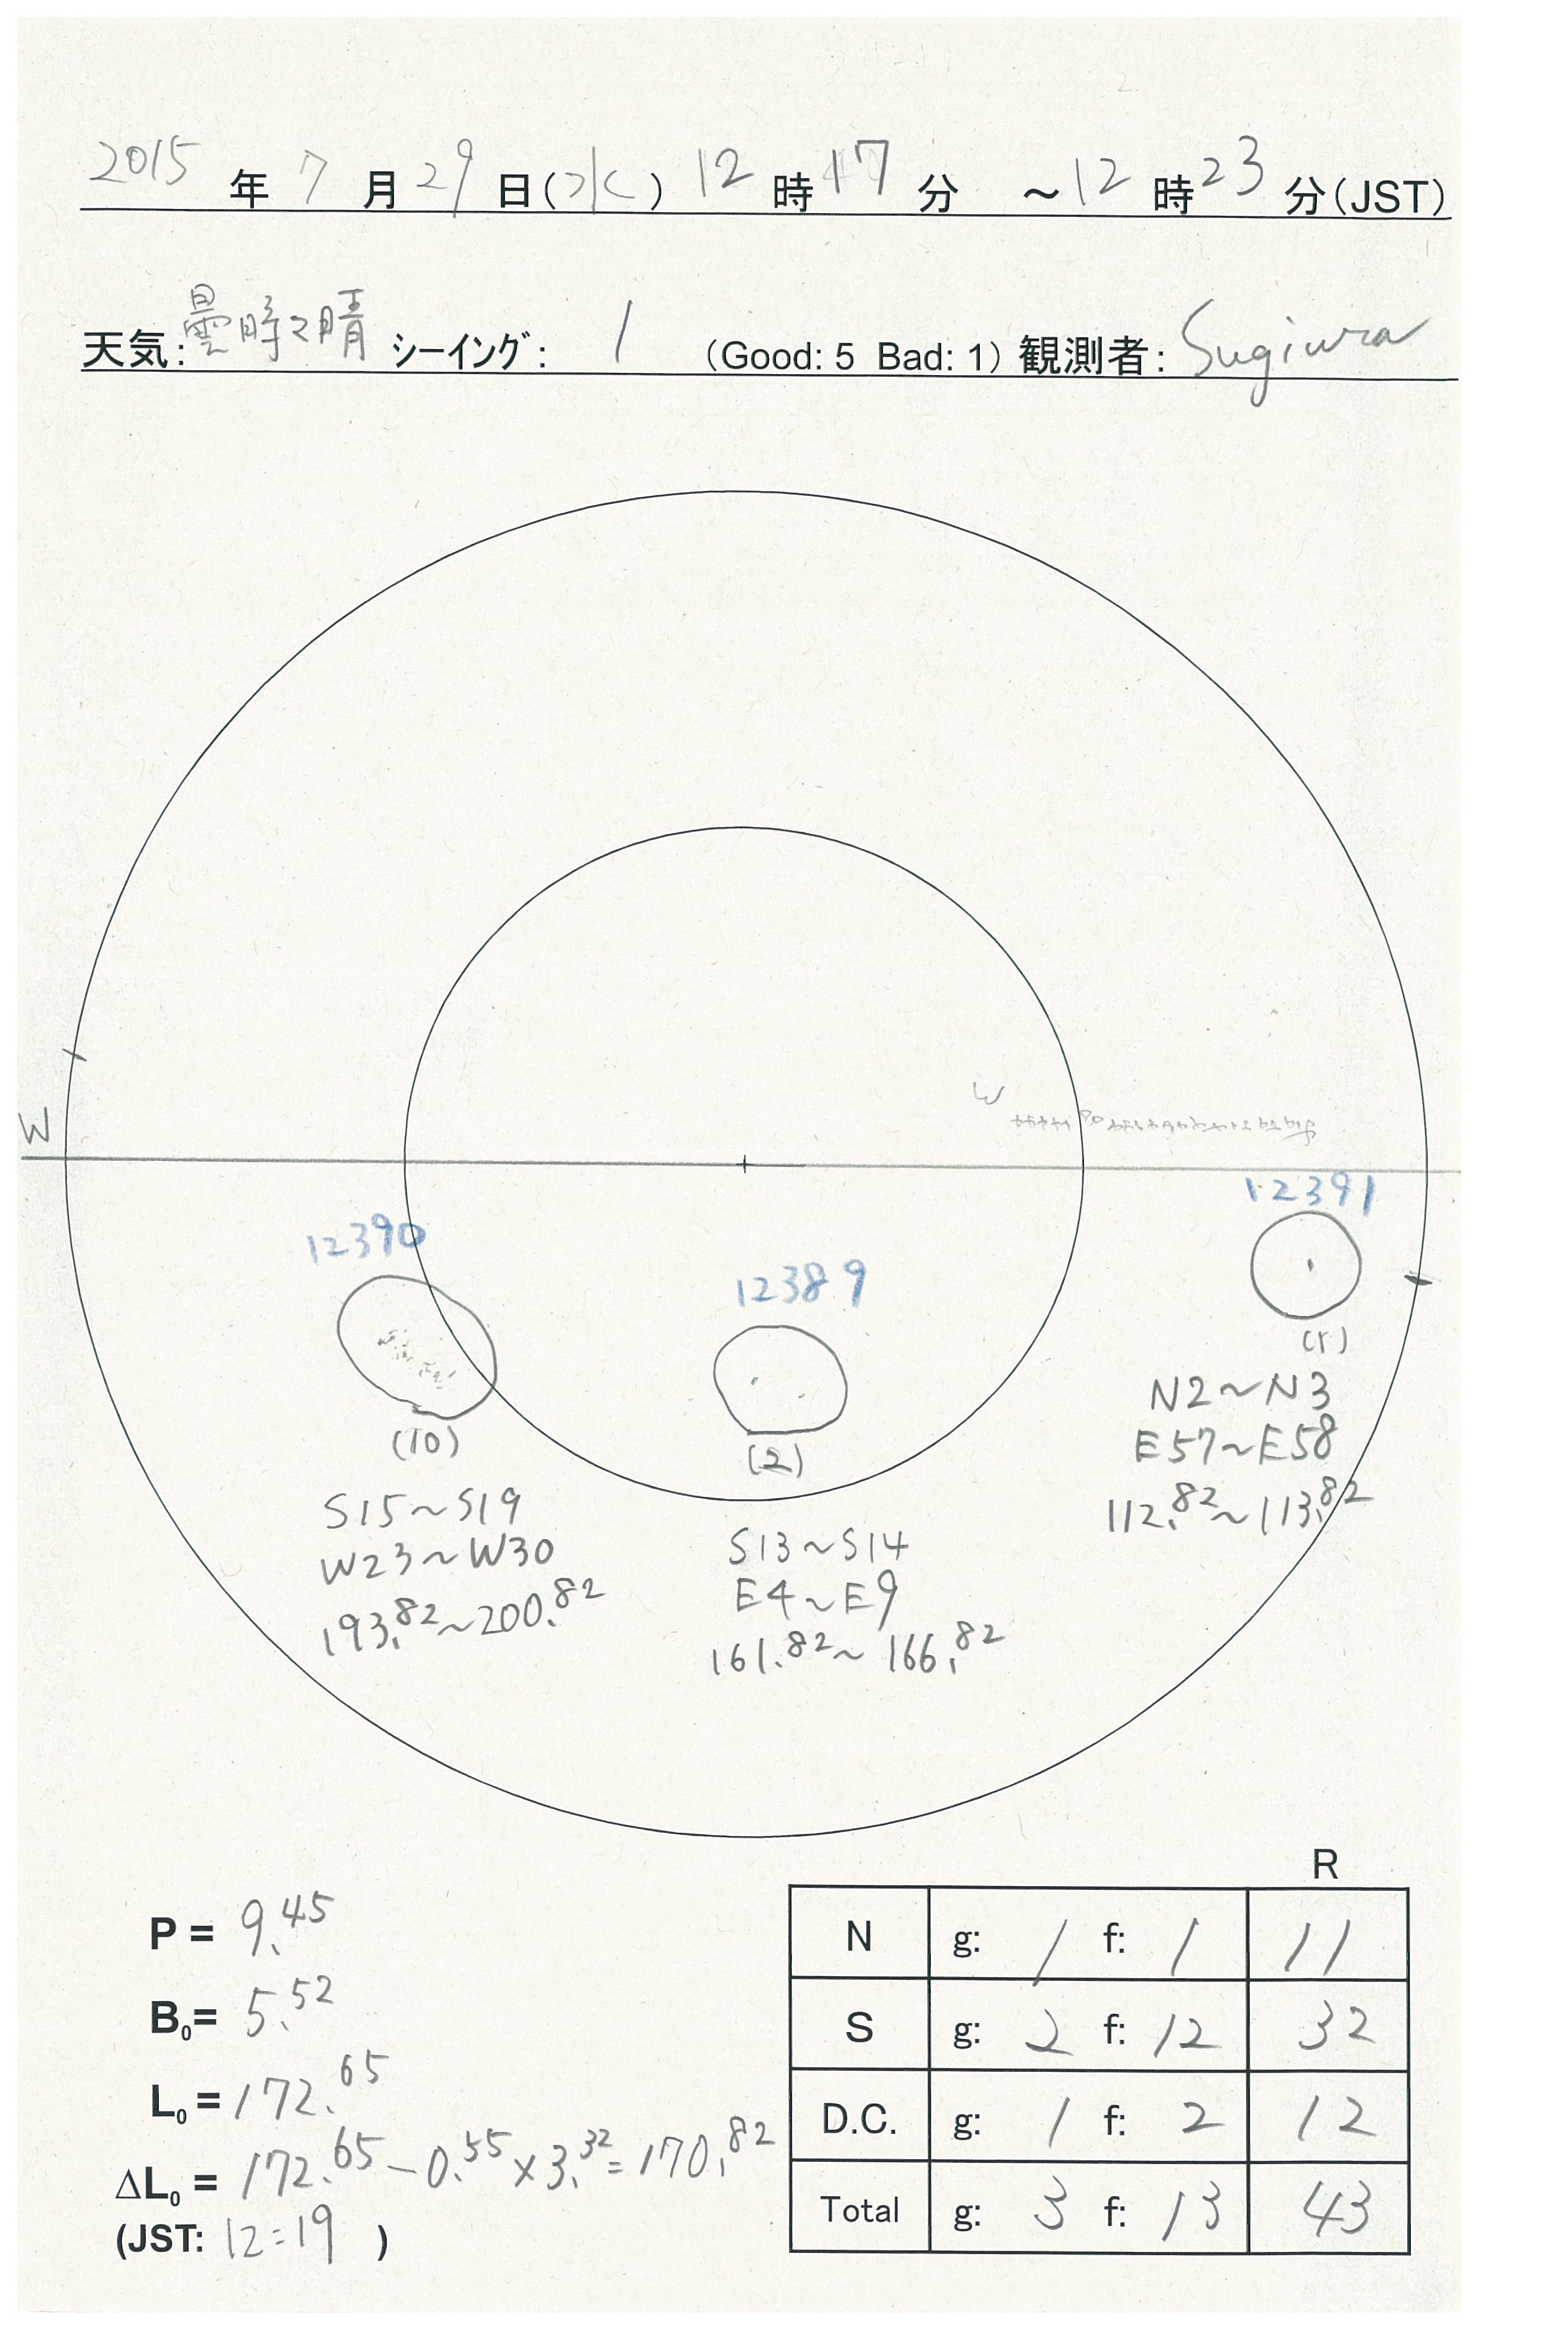 2015 年 7 月 29 日(水) 12 時 17 分 ~12 時 23 分(JST)
天気: 曇時々晴 シーイング: 1 (Good: 5 Bad: 1) 観測者: Sugiura
W
W
12391
12390
12389
(1)
(10)
(2)
N2~N3
E57~E58
112.82~113.82
S15~S19
W23~W30
193.82~200.82
S13~S14
E4~E9
161.82~166.82
R
P = 9.45
B0= 5.52
L0 = 172.65
ΔL0 = 172.65-0.55×3.32=170.82
(JST: 12:19 )
N g: 1 f: 1 11
S g: 2 f: 12 32
D.C. g: 1 f: 2 12
Total g: 3 f: 13 43